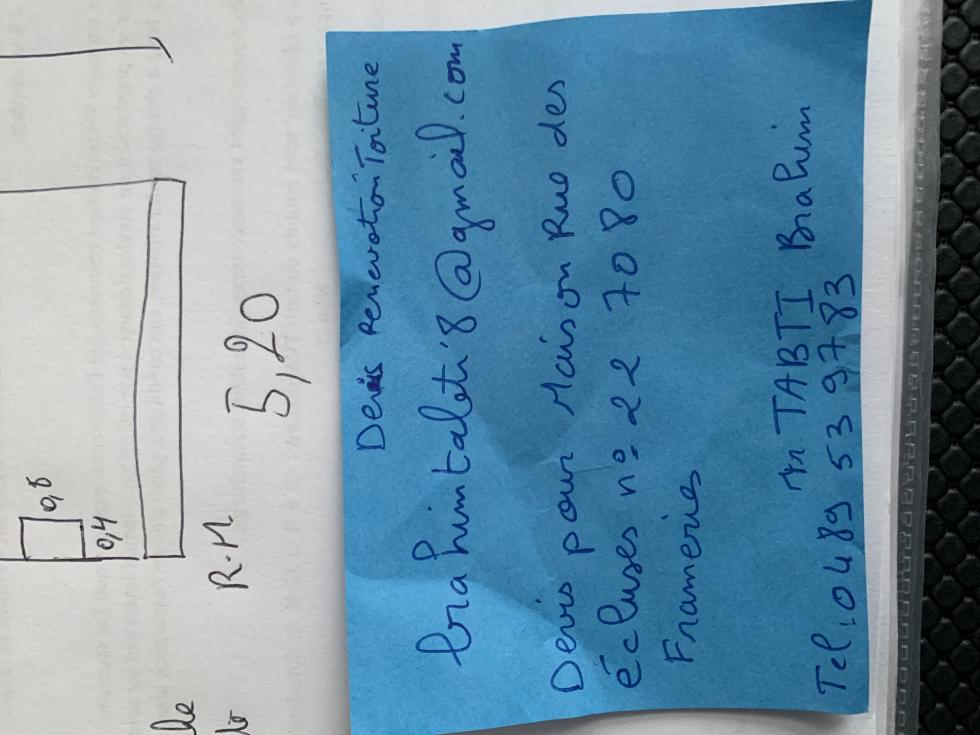 0,8
0,4
R.M
5,20
Devis renovation Toiture
brahimtabeti8@gmail.com
Devis pour Maison Rue des
écluses n° 22 7080
Frameries
Mr TABTI Brahim
Tel: 0489 53 97 83